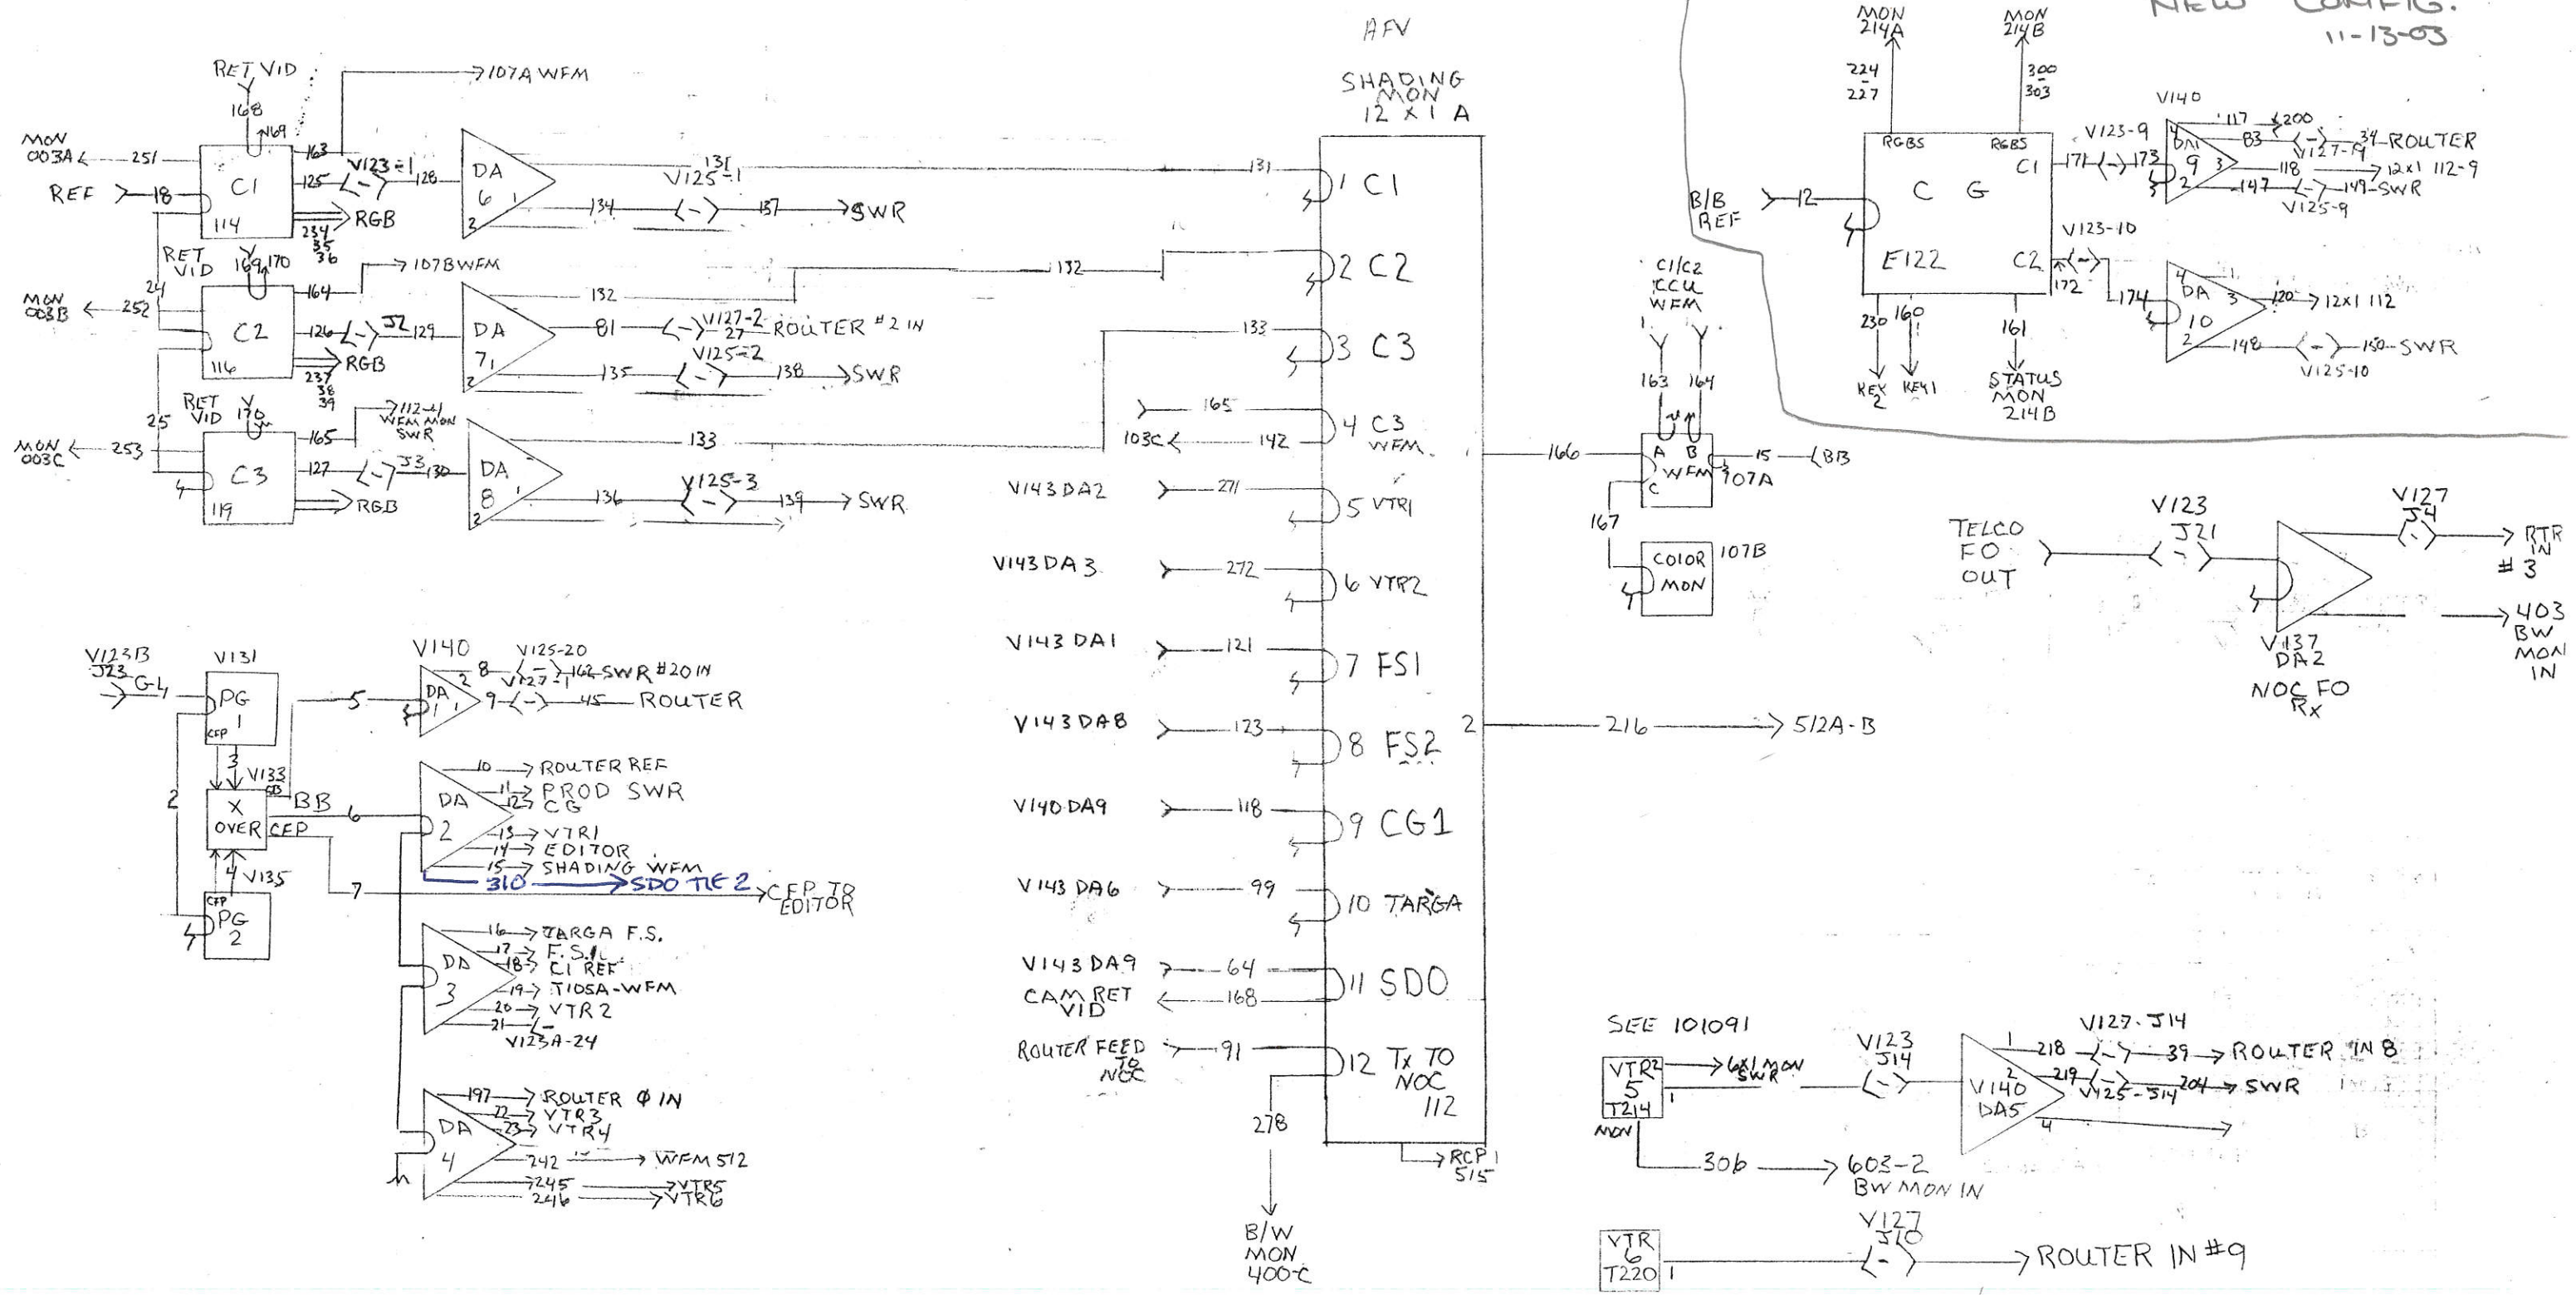 NEW CONFIG.
11-13-03
RET VID
168
169
107A WFM
MON
003A
251
REF
18
C1
114
163
125
V123-1
128
RGB
234
35
36
DA
6
1
2
131
V125-1
134
137
SWR
RET
VID
169
170
107B WFM
24
MON
003B
252
C2
116
164
126
J2
129
RGB
237
38
39
DA
7
1
2
132
81
V127-2
27
ROUTER #2 IN
V125-2
135
138
SWR
132
RET
VID
170
112-4
WFM MON
SWR
25
MON
003C
253
C3
119
165
127
J3
130
RGB
DA
8
1
2
133
V125-3
136
139
SWR
V123B
J23
V131
PG
1
CFP
3
V133
2
X
OVER
BB
CFP
4
V135
CFP
PG
2
5
6
7
V140
DA
1
1
2
8
V125-20
162
SWR #20 IN
V127-1
9
45
ROUTER
DA
2
10
ROUTER REF
11
PROD SWR
12
CG
13
VTR1
14
EDITOR
15
SHADING WFM
310
SDO TIE 2
CFP TO
EDITOR
DA
3
16
TARGA F.S.
17
F.S.1
18
C1 REF
19
T105A-WFM
20
VTR2
21
V123A-24
DA
4
197
ROUTER Φ IN
22
VTR3
23
VTR4
242
WFM 512
245
VTR5
246
VTR6
AFV
SHADING
MON
12 X 1 A
131
1 C1
2 C2
133
3 C3
165
103C
142
4 C3
WFM
V143 DA2
271
5 VTR1
V143 DA3
272
6 VTR2
V143 DA1
121
7 FS1
V143 DA8
123
8 FS2
V140 DA9
118
9 CG1
V143 DA6
99
10 TARGA
V143 DA9
64
CAM RET
VID
168
11 SDO
ROUTER FEED
TO
NOC
91
12 TX TO
NOC
112
278
B/W
MON
400-C
RCP 1
515
2
216
512A-B
166
C1/C2
CCU
WFM
163
164
A
B
WFM
C
107A
15
BB
167
COLOR
MON
107B
MON
214A
MON
214B
224
-
227
300
-
303
RGBS
RGBS
B/B
REF
12
C G
E122
C1
C2
171
V123-9
173
V123-10
172
174
230
160
161
KEY
2
KEY1
STATUS
MON
214B
V140
DA
9
4
3
2
117
200
83
V127-19
34
ROUTER
118
12x1 112-9
147
149
SWR
V125-9
DA
10
4
3
2
1
120
12x1 112
148
150
SWR
V125-10
TELCO
FO
OUT
V123
J21
V127
J4
RTR
IN
#3
403
BW
MON
IN
V137
DA2
NOC FO
Rx
SEE 101091
VTR2
5
T214
MON
6X1 MON
SWR
1
306
603-2
BW MON IN
V123
J14
V140
DA5
1
2
4
V127-J14
218
39
ROUTER IN 8
219
V125-J14
204
SWR
VTR
6
T220
1
V127
J10
ROUTER IN #9